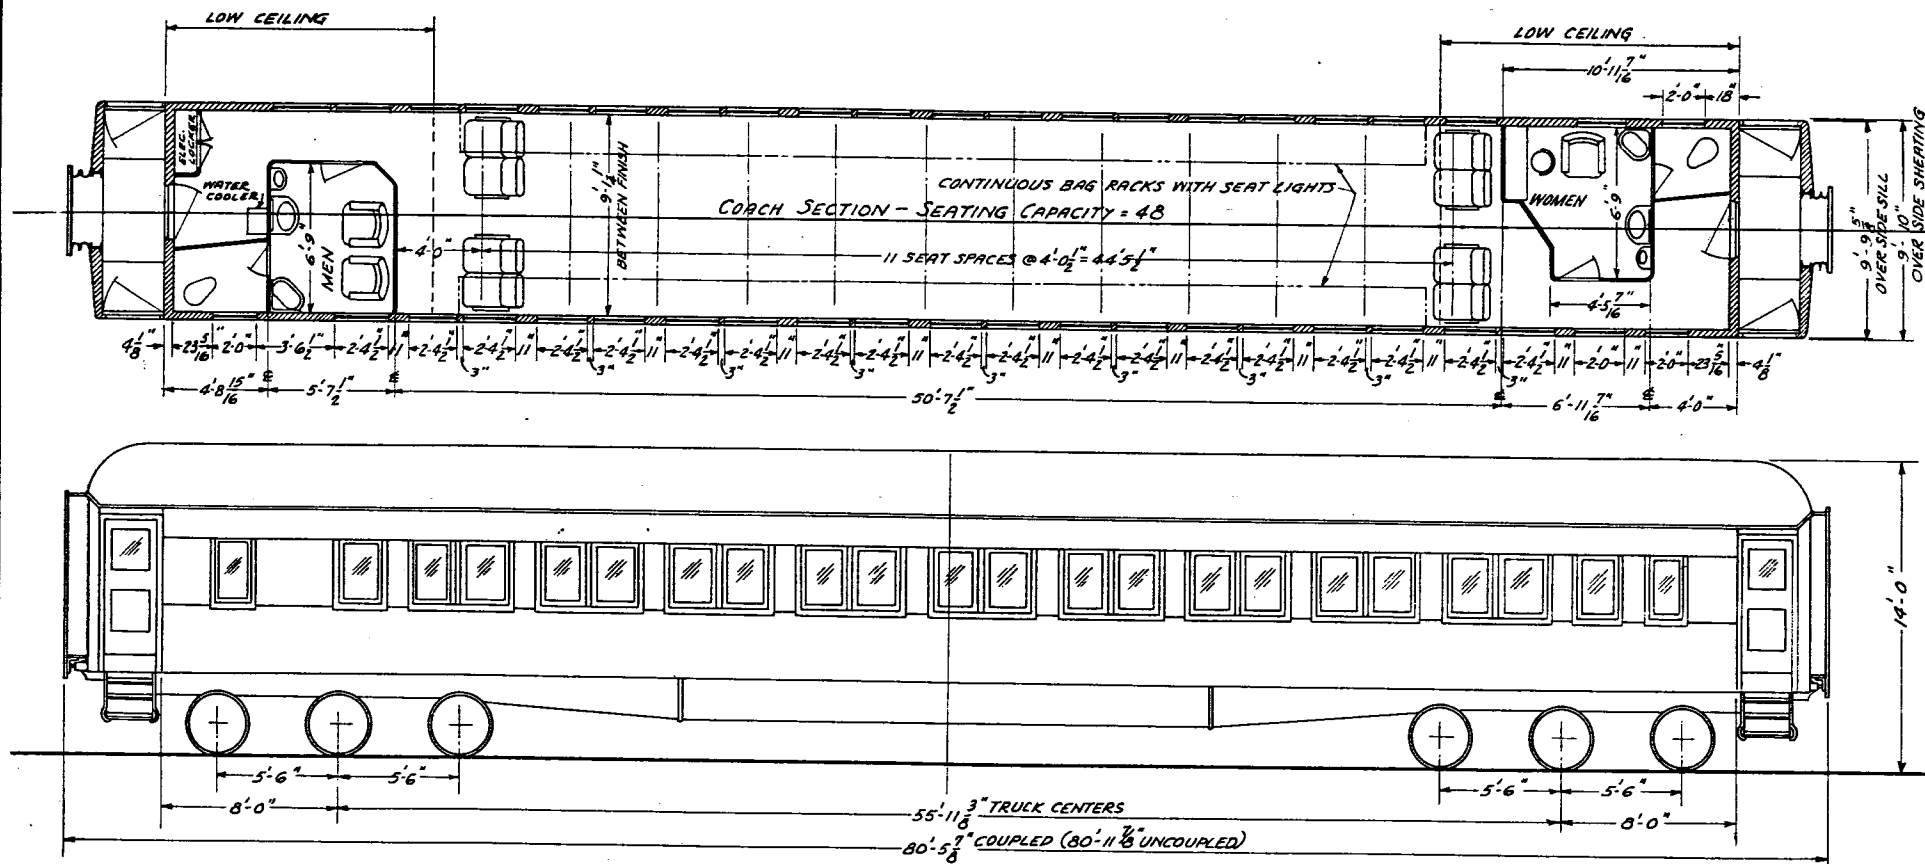 LOW CEILING
LOW CEILING
10'-11 7/16"
2'-0" 18"
ELEC. LOCKER
WATER COOLER
MEN
6'-9"
4'-0"
9'-1 1/4" BETWEEN FINISH
CONTINUOUS BAG RACKS WITH SEAT LIGHTS
COACH SECTION - SEATING CAPACITY = 48
11 SEAT SPACES @ 4'-0 1/2" = 44'-5 1/2"
WOMEN
6'-9"
4'-5 7/16"
9'-9 5/8" OVER SIDE SILL
9'-10" OVER SIDE SHEATING
4 1/8" 23 5/16" 2'-0" 3'-6 1/2" 2'-4 1/2" 11" 2'-4 1/2" 2'-4 1/2" 11" 2'-4 1/2" 2'-4 1/2" 11" 2'-4 1/2" 2'-4 1/2" 11" 2'-4 1/2" 2'-4 1/2" 11" 2'-4 1/2" 2'-4 1/2" 11" 2'-4 1/2" 2'-4 1/2" 11" 2'-4 1/2" 2'-4 1/2" 11" 2'-4 1/2" 2'-4 1/2" 11" 2'-4 1/2" 2'-4 1/2" 11" 2'-0" 11" 2'-0" 23 5/16" 4 1/8"
3" 3" 3" 3" 3" 3" 3" 3" 3"
4'-8 15/16" 5'-7 1/2" 50'-7 1/2" 6'-11 7/16" 4'-0"
14'-0"
5'-6" 5'-6" 5'-6" 5'-6"
8'-0" 55'-11 3/8" TRUCK CENTERS 8'-0"
80'-5 7/8" COUPLED (80'-11 7/8" UNCOUPLED)